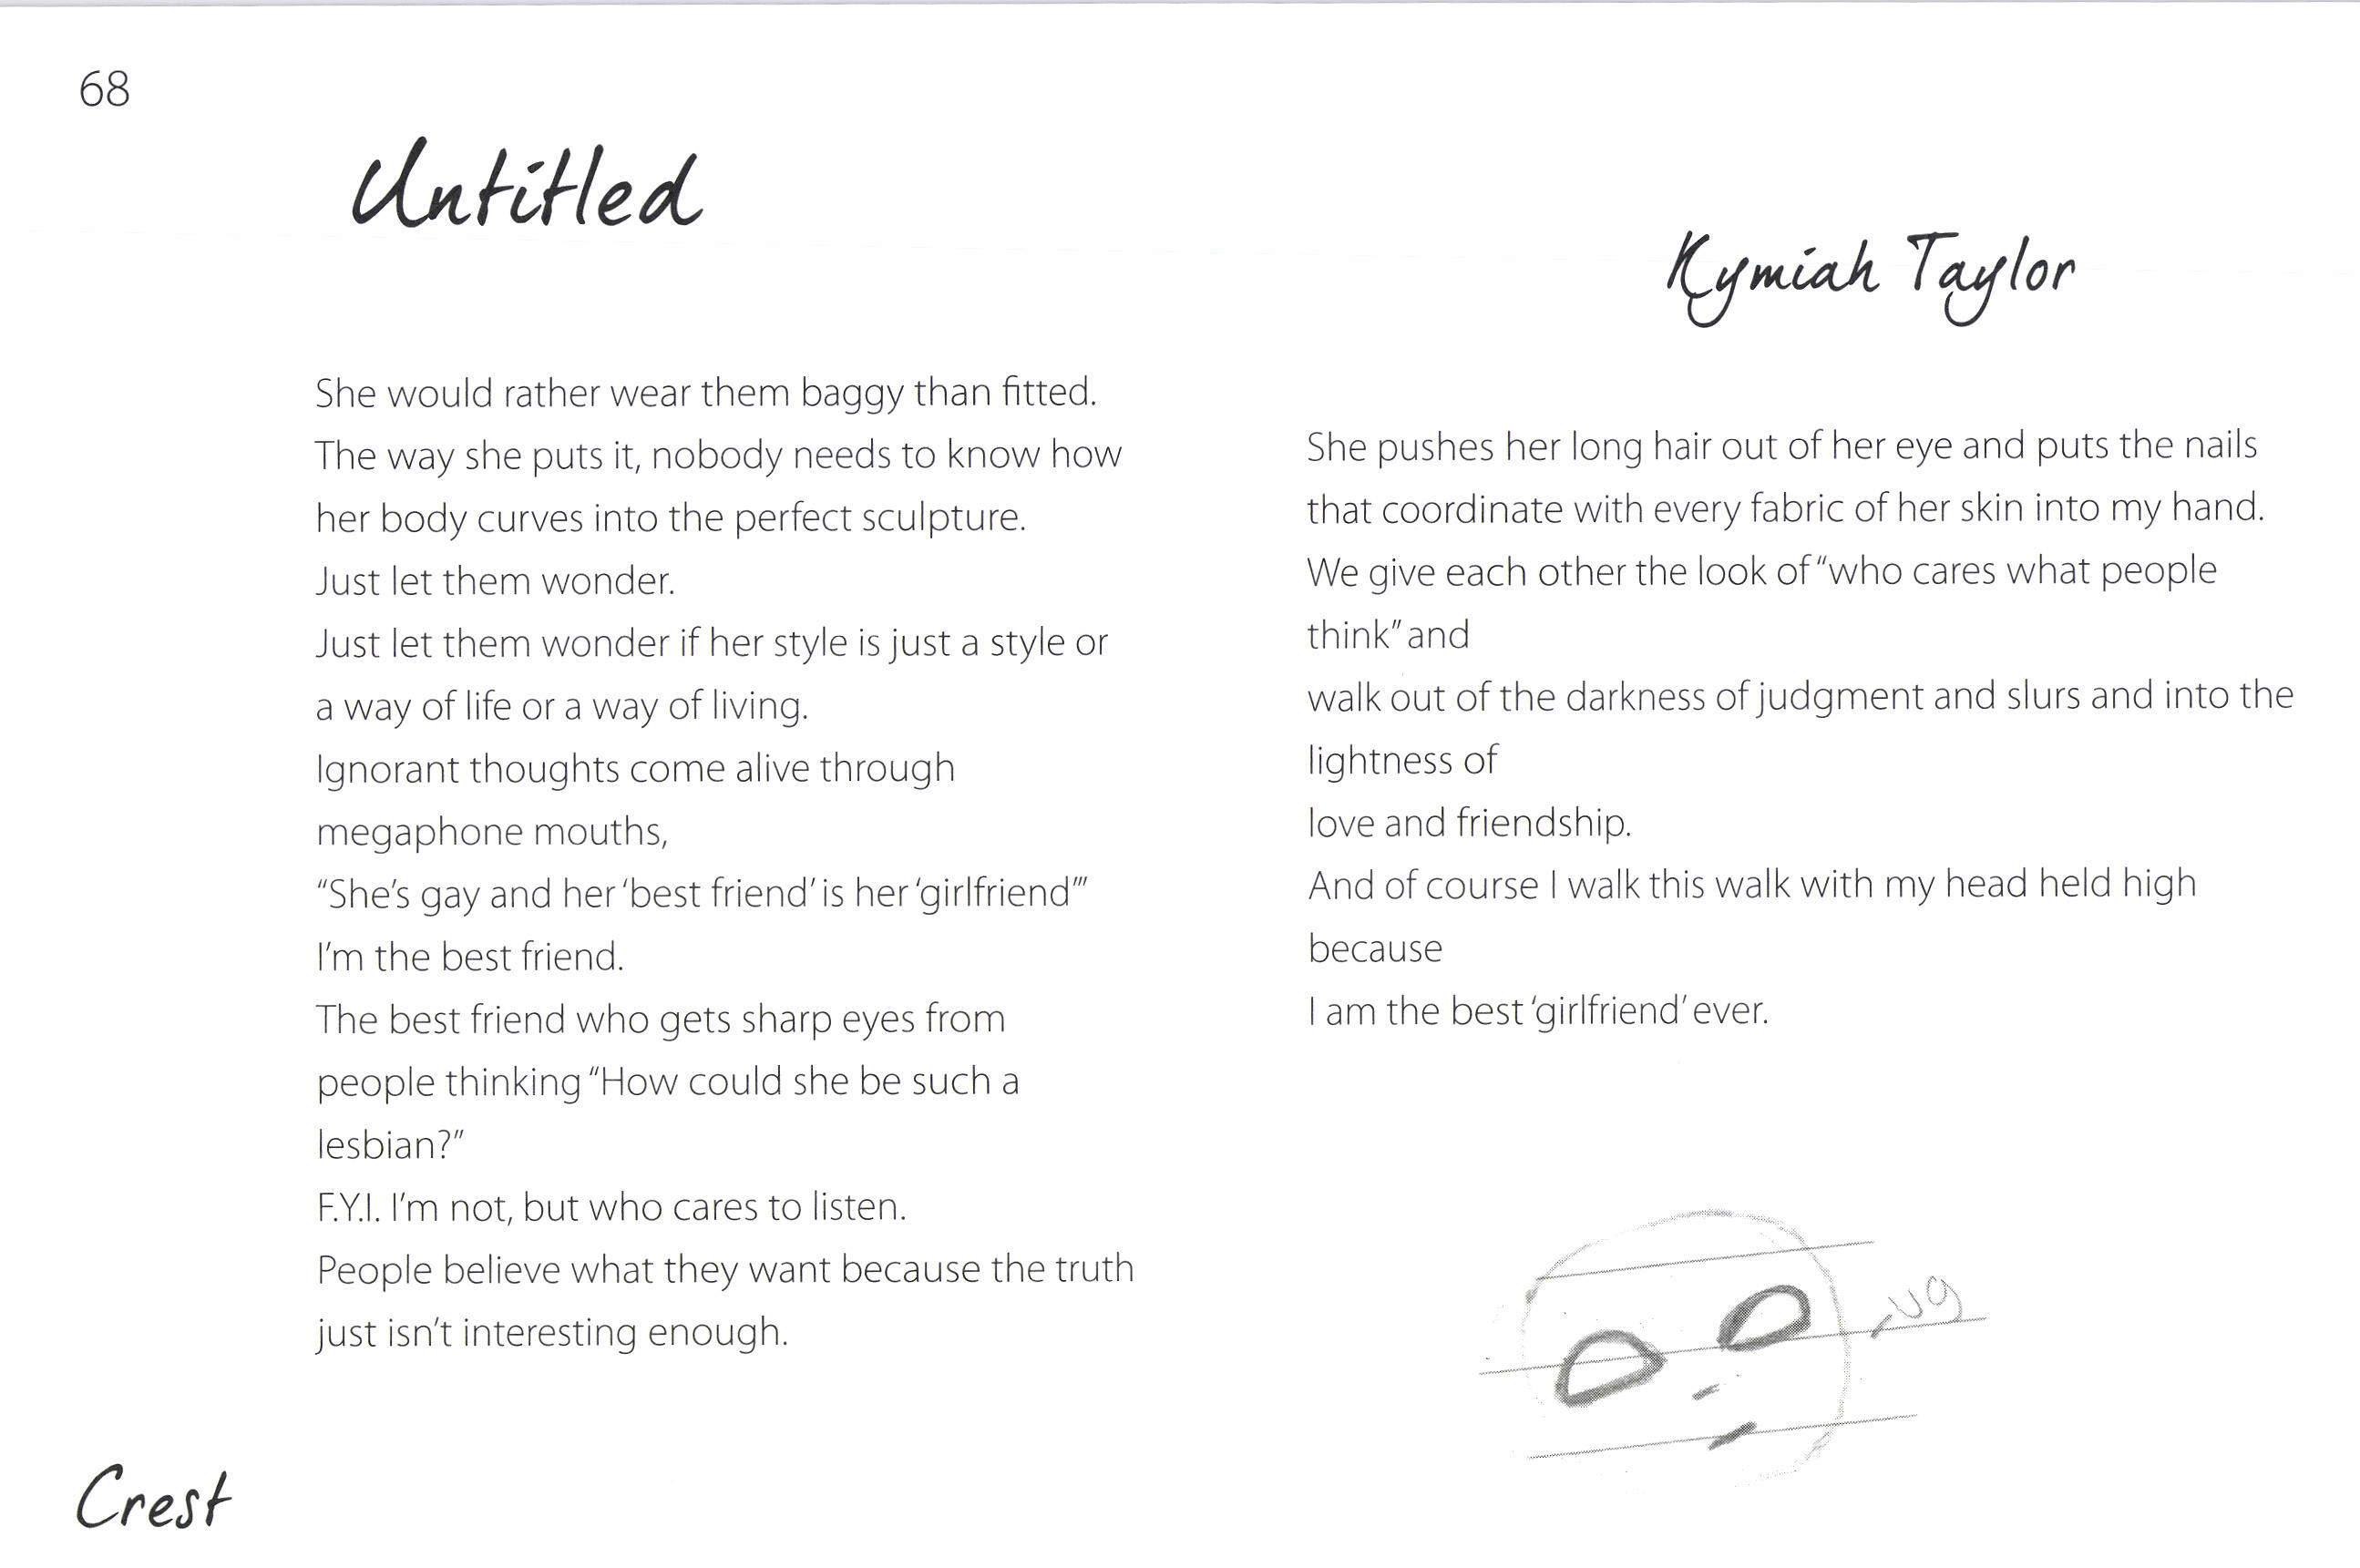 68
Untitled
Kymiah Taylor
She would rather wear them baggy than fitted.
The way she puts it, nobody needs to know how
her body curves into the perfect sculpture.
Just let them wonder.
Just let them wonder if her style is just a style or
a way of life or a way of living.
Ignorant thoughts come alive through
megaphone mouths,
“She’s gay and her ‘best friend’ is her ‘girlfriend’”
I’m the best friend.
The best friend who gets sharp eyes from
people thinking “How could she be such a
lesbian?”
F.Y.I. I’m not, but who cares to listen.
People believe what they want because the truth
just isn’t interesting enough.
She pushes her long hair out of her eye and puts the nails
that coordinate with every fabric of her skin into my hand.
We give each other the look of “who cares what people
think” and
walk out of the darkness of judgment and slurs and into the
lightness of
love and friendship.
And of course I walk this walk with my head held high
because
I am the best ‘girlfriend’ ever.
Crest